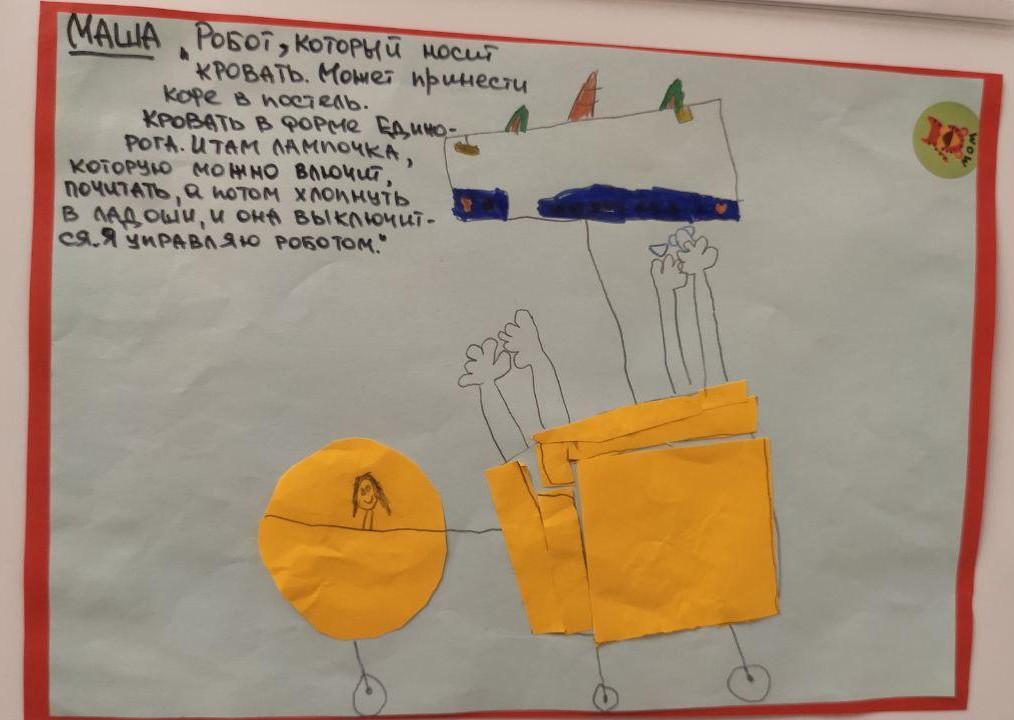 МАША „РОБОТ, КОТОРЫЙ НОСИТ
КРОВАТЬ. МОЖЕТ ПРИНЕСТИ
КОФЕ В ПОСТЕЛЬ.
КРОВАТЬ В ФОРМЕ ЕДИНО-
РОГА. И ТАМ ЛАМПОЧКА,
КОТОРУЮ МОЖНО ВЛЮЧИТ,
ПОЧИТАТЬ, А ПОТОМ ХЛОПНУТЬ
В ЛАДОШИ, И ОНА ВЫКЛЮЧИТ-
СЯ. Я УПРАВЛЯЮ РОБОТОМ."
WOW